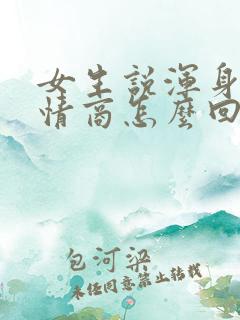 女生说浑身
情商怎麼回
包河梁
未经同意禁止转载